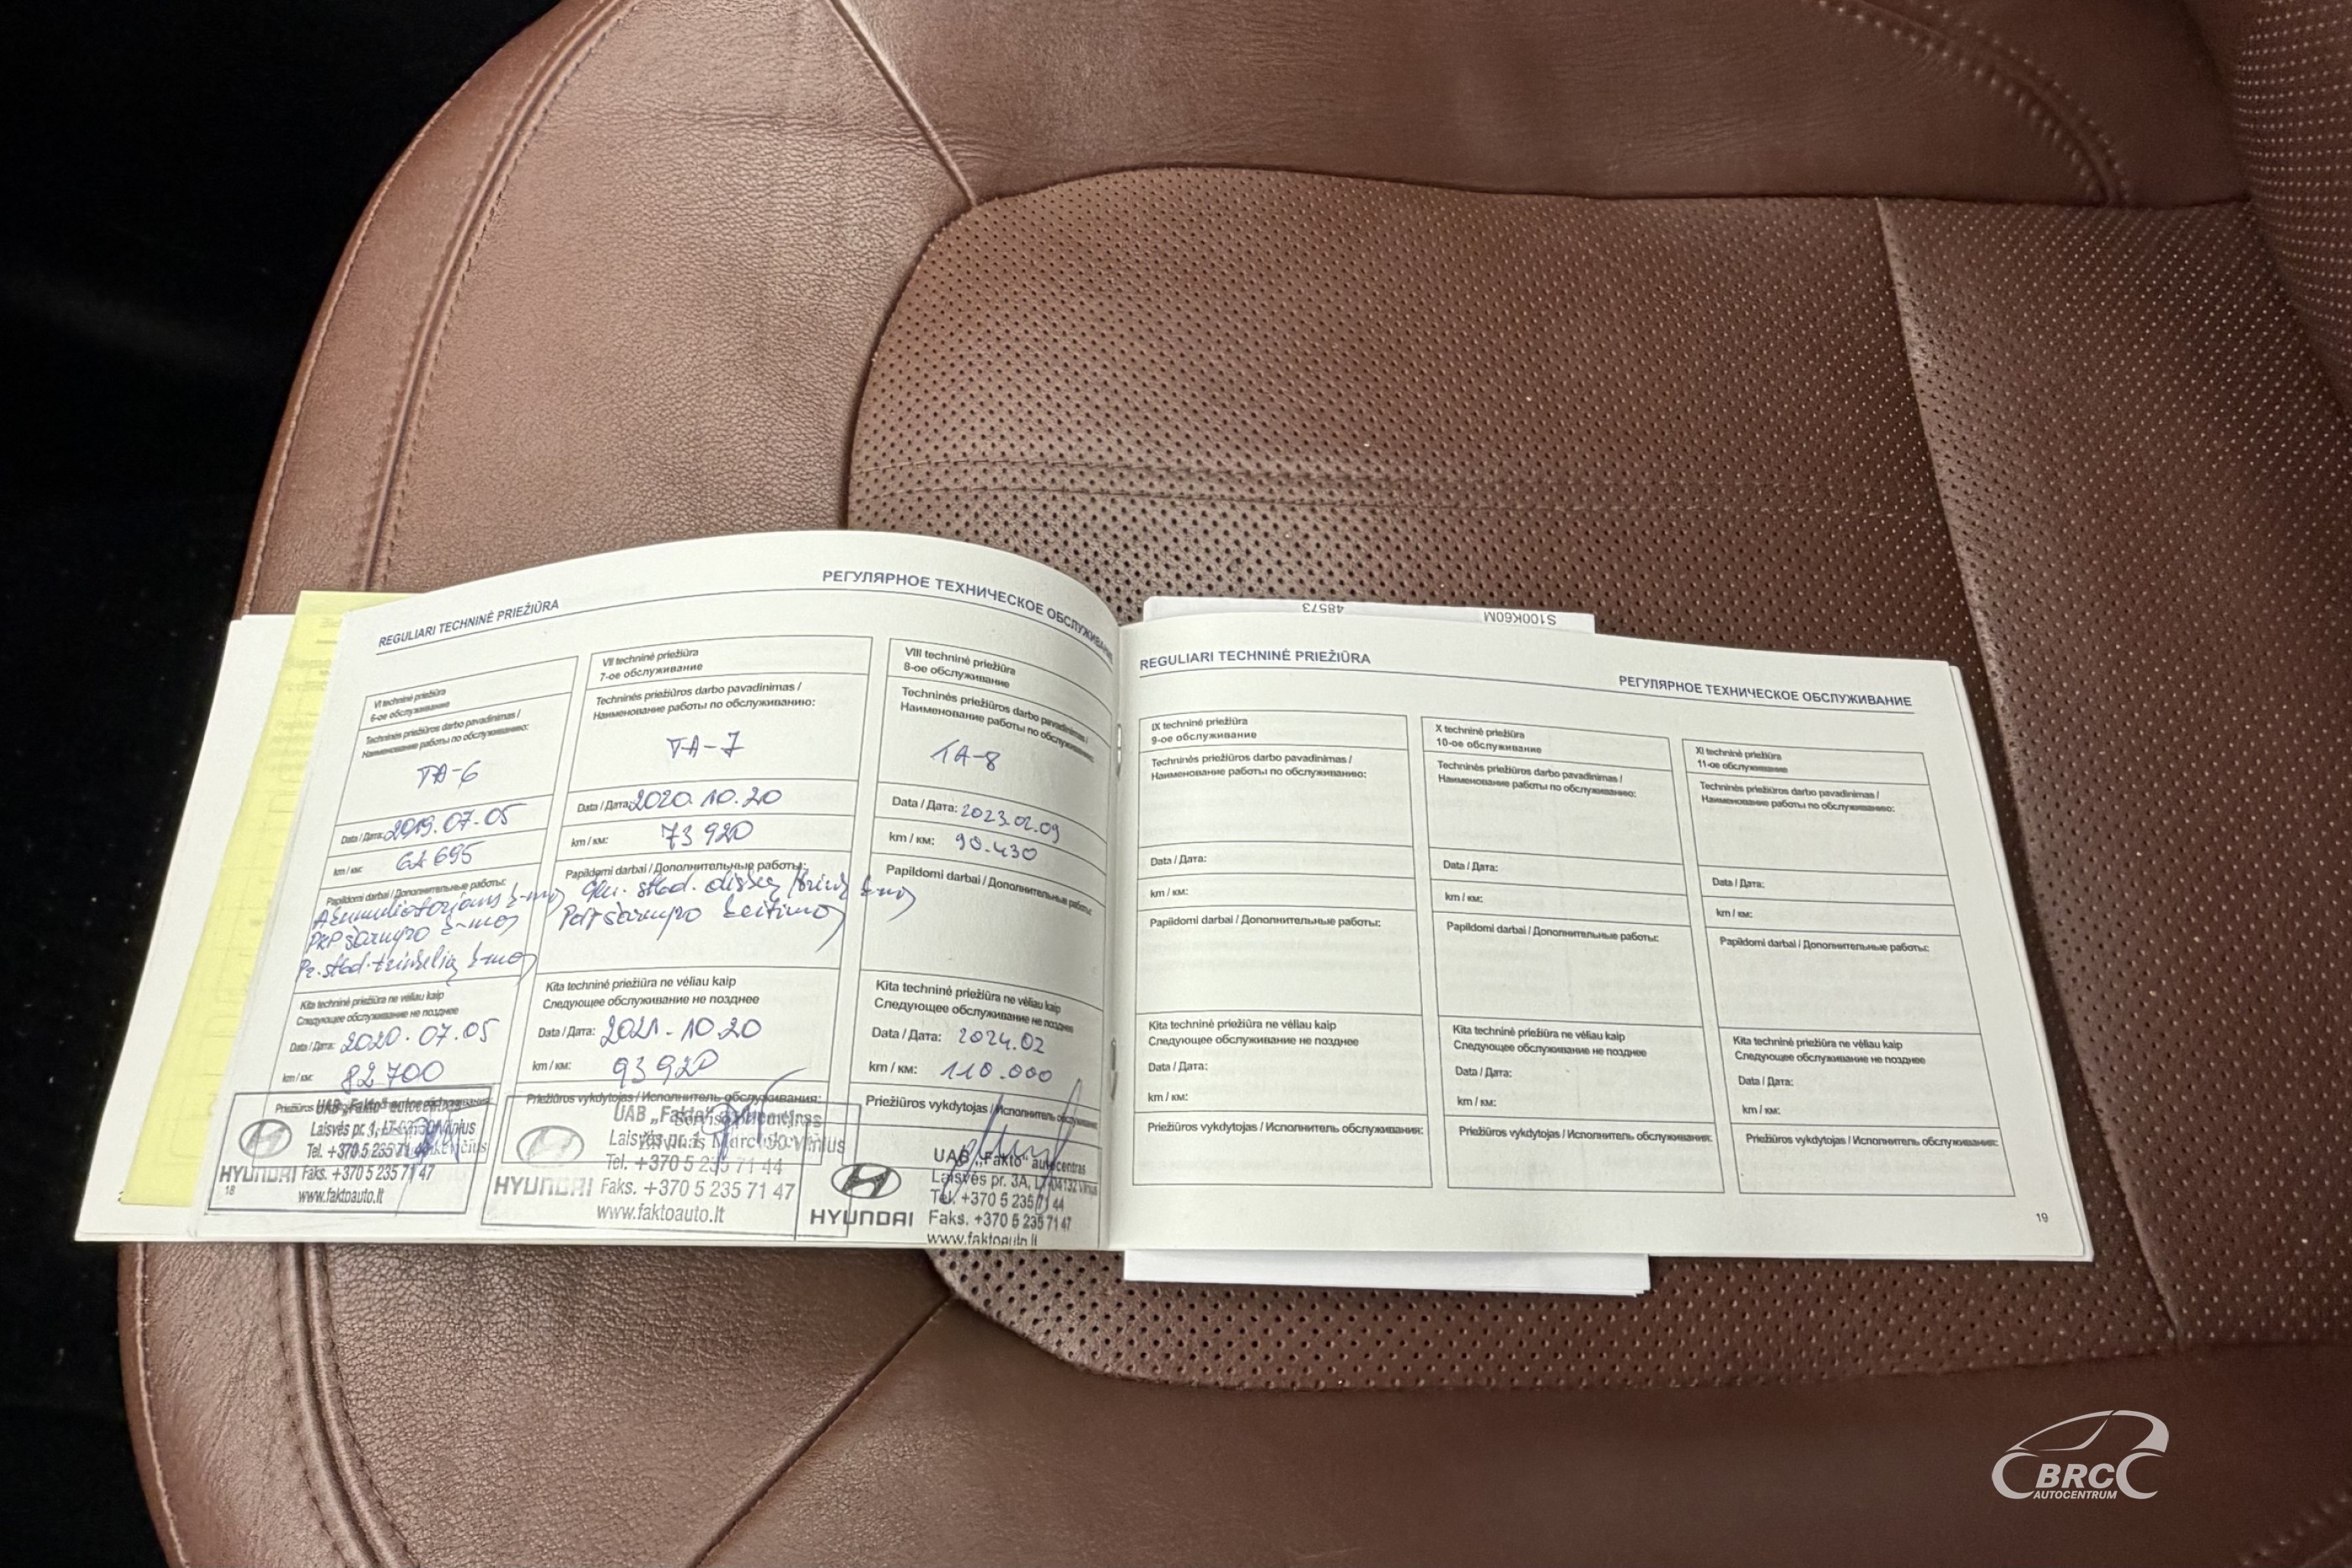 REGULIARI TECHNINĖ PRIEŽIŪRA
РЕГУЛЯРНОЕ ТЕХНИЧЕСКОЕ ОБСЛУЖИВАНИЕ
VI techninė priežiūra
6-ое обслуживание
Techninės priežiūros darbo pavadinimas /
Наименование работы по обслуживанию:
TA-6
Data / Дата: 2019.07.05
km / км: 62 695
Papildomi darbai / Дополнительные работы:
PKP šarnyro
Kita techninė priežiūra ne vėliau kaip
Следующее обслуживание не позднее
Data / Дата: 2020.07.05
km / км: 82 700
Priežiūros vykdytojas
UAB „Fakto" autocentras
Laisvės pr.
Tel. +370 5 235 71 44
HYUNDAI Faks. +370 5 235 71 47
www.faktoauto.lt
18
VII techninė priežiūra
7-ое обслуживание
Techninės priežiūros darbo pavadinimas /
Наименование работы по обслуживанию:
TA-7
Data / Дата: 2020.10.20
km / км: 73 920
Papildomi darbai / Дополнительные работы:
šarnyro keitimas
Kita techninė priežiūra ne vėliau kaip
Следующее обслуживание не позднее
Data / Дата: 2021-10.20
km / км: 93 920
Priežiūros vykdytojas / Исполнитель обслуживания:
UAB „Fakto"
Laisvės pr.
Tel. +370 5 235 71 44
HYUNDAI Faks. +370 5 235 71 47
www.faktoauto.lt
VIII techninė priežiūra
8-ое обслуживание
Techninės priežiūros darbo pavadinimas /
Наименование работы по обслуживанию:
TA-8
Data / Дата: 2023.02.09
km / км: 90.430
Papildomi darbai / Дополнительные работы:
Kita techninė priežiūra ne vėliau kaip
Следующее обслуживание не позднее
Data / Дата: 2024.02
km / км: 110.000
Priežiūros vykdytojas / Исполнитель обслуживания:
UAB „Fakto" autocentras
Laisvės pr. 3A, LT-04132 Vilnius
Tel. +370 5 235 71 44
HYUNDAI Faks. +370 5 235 71 47
www.faktoauto.lt
48573
S100K60M
REGULIARI TECHNINĖ PRIEŽIŪRA
РЕГУЛЯРНОЕ ТЕХНИЧЕСКОЕ ОБСЛУЖИВАНИЕ
IX techninė priežiūra
9-ое обслуживание
Techninės priežiūros darbo pavadinimas /
Наименование работы по обслуживанию:
Data / Дата:
km / км:
Papildomi darbai / Дополнительные работы:
Kita techninė priežiūra ne vėliau kaip
Следующее обслуживание не позднее
Data / Дата:
km / км:
Priežiūros vykdytojas / Исполнитель обслуживания:
X techninė priežiūra
10-ое обслуживание
Techninės priežiūros darbo pavadinimas /
Наименование работы по обслуживанию:
Data / Дата:
km / км:
Papildomi darbai / Дополнительные работы:
Kita techninė priežiūra ne vėliau kaip
Следующее обслуживание не позднее
Data / Дата:
km / км:
Priežiūros vykdytojas / Исполнитель обслуживания:
XI techninė priežiūra
11-ое обслуживание
Techninės priežiūros darbo pavadinimas /
Наименование работы по обслуживанию:
Data / Дата:
km / км:
Papildomi darbai / Дополнительные работы:
Kita techninė priežiūra ne vėliau kaip
Следующее обслуживание не позднее
Data / Дата:
km / км:
Priežiūros vykdytojas / Исполнитель обслуживания:
19
BRC
AUTOCENTRUM